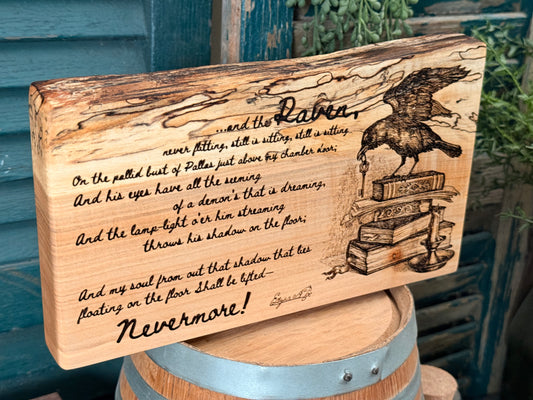 ...and the Raven,
never flitting, still is sitting, still is sitting
On the pallid bust of Pallas just above my chamber door;
And his eyes have all the seeming
of a demon's that is dreaming,
And the lamp-light o'er him streaming
throws his shadow on the floor;
And my soul from out that shadow that lies
floating on the floor Shall be lifted—
Nevermore!